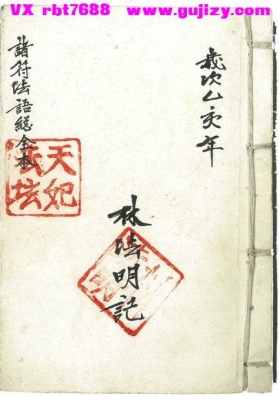 VX rbt7688 www.gujizy.com
歲次乙亥年
諸符法語總全本
天妃
林法明記